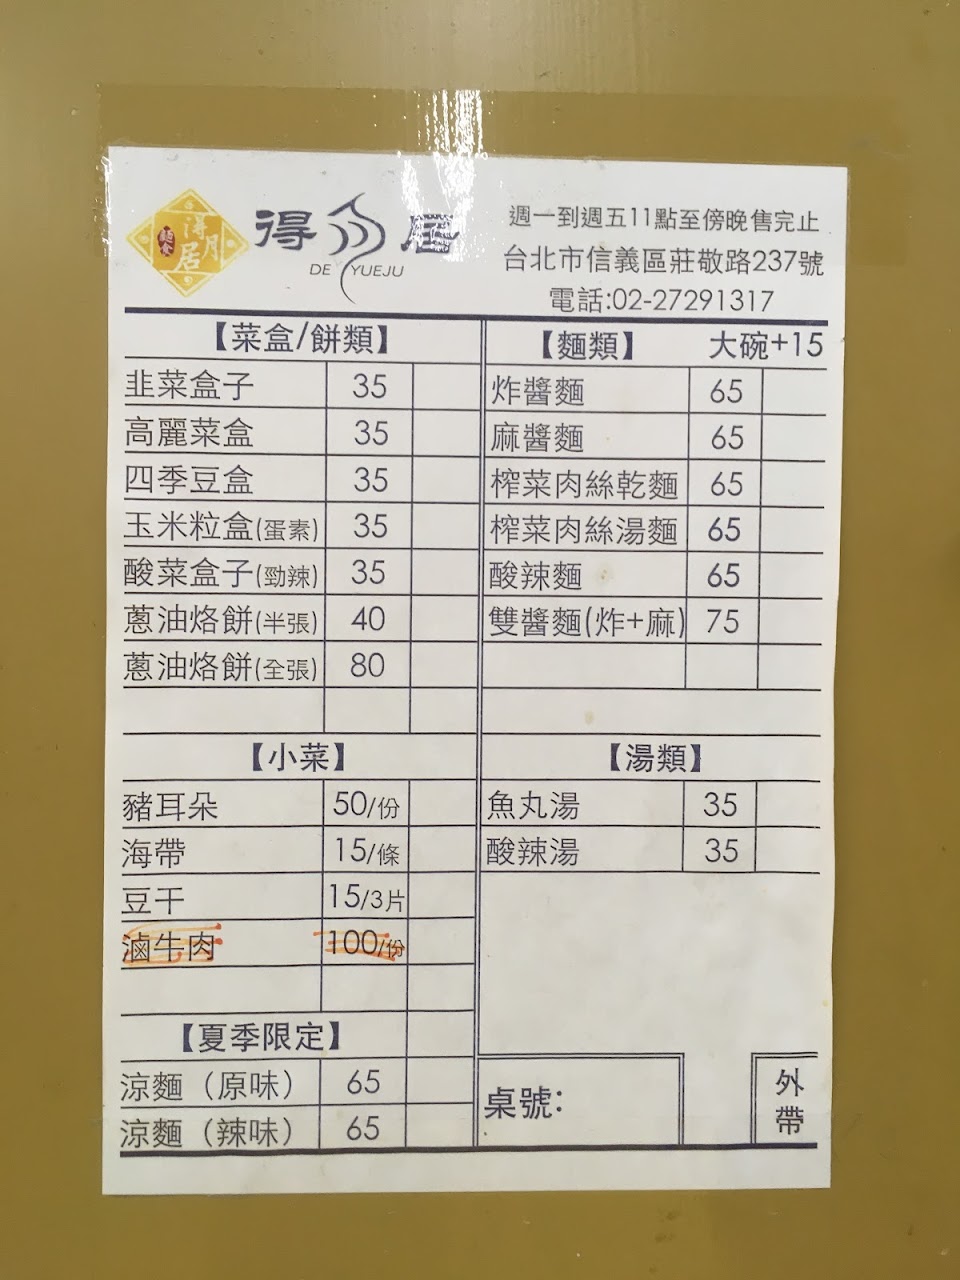 得月居
麵食
得月居
DE YUEJU
週一到週五11點至傍晚售完止
台北市信義區莊敬路237號
電話:02-27291317
【菜盒/餅類】
韭菜盒子 35
高麗菜盒 35
四季豆盒 35
玉米粒盒(蛋素) 35
酸菜盒子(勁辣) 35
蔥油烙餅(半張) 40
蔥油烙餅(全張) 80
【小菜】
豬耳朵 50/份
海帶 15/條
豆干 15/3片
滷牛肉 100/份
【夏季限定】
涼麵（原味） 65
涼麵（辣味） 65
【麵類】 大碗+15
炸醬麵 65
麻醬麵 65
榨菜肉絲乾麵 65
榨菜肉絲湯麵 65
酸辣麵 65
雙醬麵(炸+麻) 75
【湯類】
魚丸湯 35
酸辣湯 35
桌號:
外帶